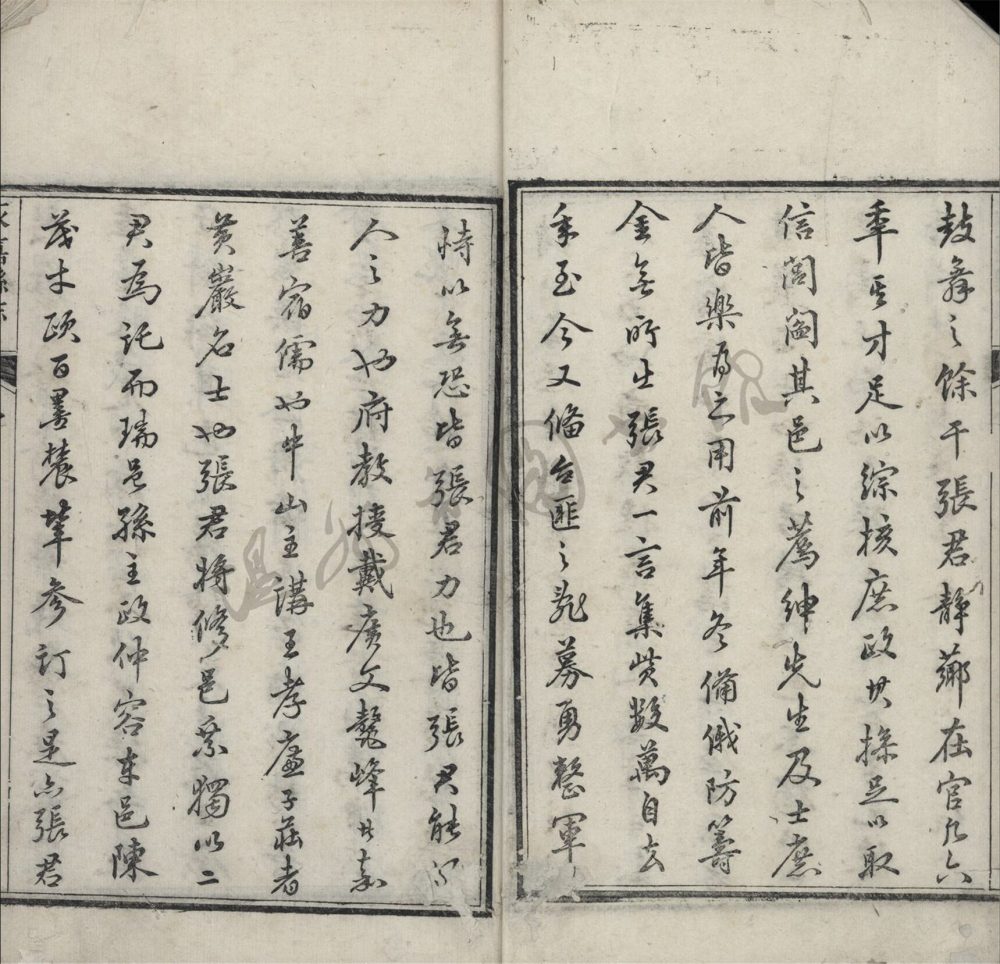 鼓舞之餘干張君靜薌在官凡六
年其才足以綜核庶政其操足以取
信閭閻其邑之薦紳先生及士庶
人皆樂為之用前年冬備俄防籌
金無所出張君一言集貲數萬自去
年至今又備台匪之亂募勇整軍
恃以無恐皆張君力也皆張君能用
人之力也府教授戴廣文鼇峰其郡
善宿儒也中山主講王孝廉子莊者
黃巖名士也張君將修邑乘獨以二
君為託而瑞邑孫主政仲容本邑陳
茂才頤百墨農輩參訂之是亦張君
永嘉縣志
溫州圖書館